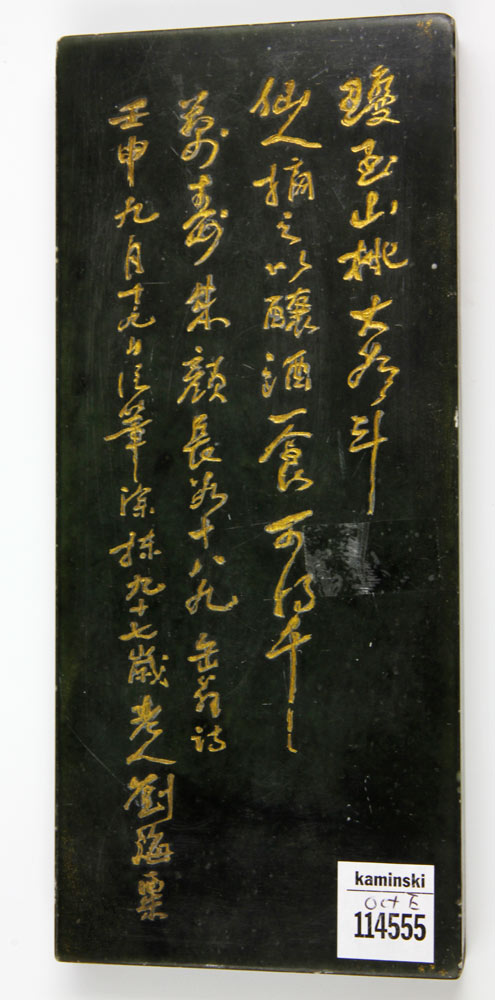 瓊玉山桃大如斗
仙人摘之以釀酒一食可得千
萬壽朱顏長如十八九 缶翁詩
壬申九月十九日信筆塗抹九十七歲老人劉海粟
kaminski
Oct E
114555